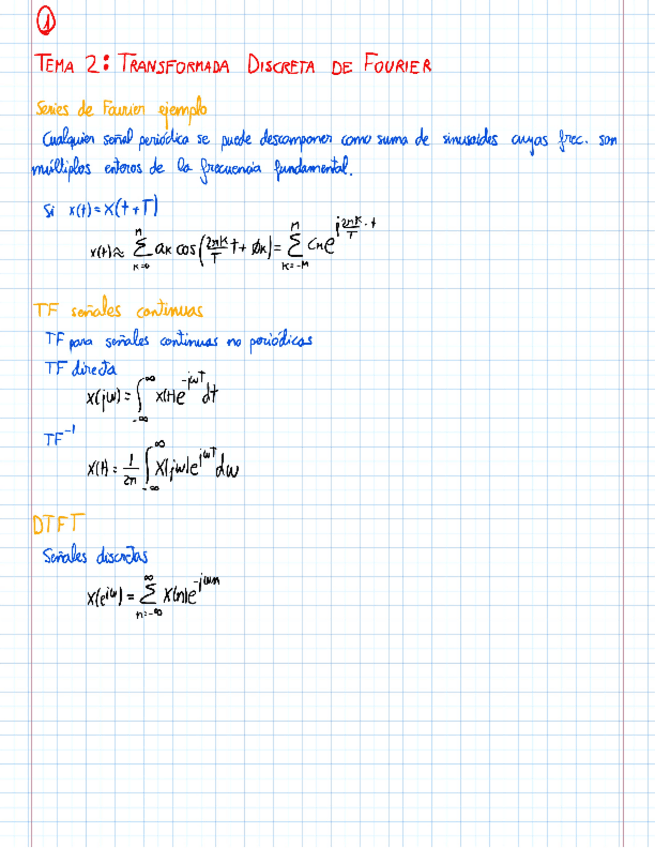 1
TEMA 2: TRANSFORMADA DISCRETA DE FOURIER
Series de Fourier ejemplo
Cualquier señal periódica se puede descomponer como suma de sinusoides cuyas frec. son
múltiplos enteros de la frecuencia fundamental.
Si x(t) = x(t+T)
x(t) ≈ ∑_{k=0}^{M} ak cos(2πk/T t + ϕk) = ∑_{k=-M}^{M} Ck e^{j 2πk/T · t}
TF señales continuas
TF para señales continuas no periódicas
TF directa
X(jω) = ∫_{-∞}^{∞} x(t) e^{-jωT} dt
TF^{-1}
X(t) = 1/2π ∫_{-∞}^{∞} X(jω) e^{jωT} dω
DTFT
Señales discretas
X(e^{jω}) = ∑_{n=-∞}^{∞} X(n) e^{-jωn}